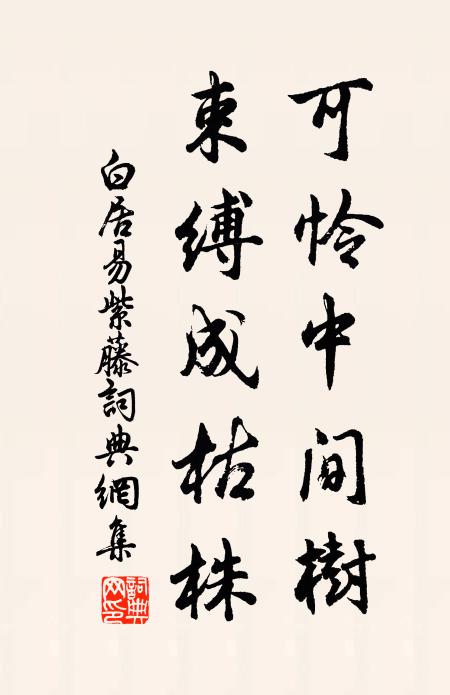 可怜中间樹
束缚成枯株
白居易紫藤詞典網集
詞典网印